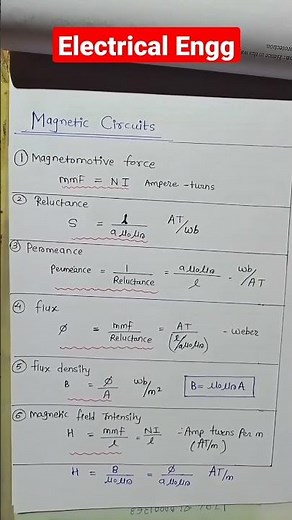 Electrical Engg
Magnetic Circuits
① Magnetomotive force
mmF = NI Ampere-turns
② Reluctance
S = l/aμ₀μr AT/wb
③ Peromeance
Permeance = 1/Reluctance = aμ₀μr/l - wb/AT
④ flux
Ø = mmf/Reluctance = AT/(l/aμ₀μr) - weber
⑤ flux density
B = Ø/A wb/m² B = μ₀μrA
⑥ Magnetic field intensity
H = mmf/l = NI/l - Amp turns Per m
(AT/m)
H = B/μ₀μr = Ø/aμ₀μr AT/m